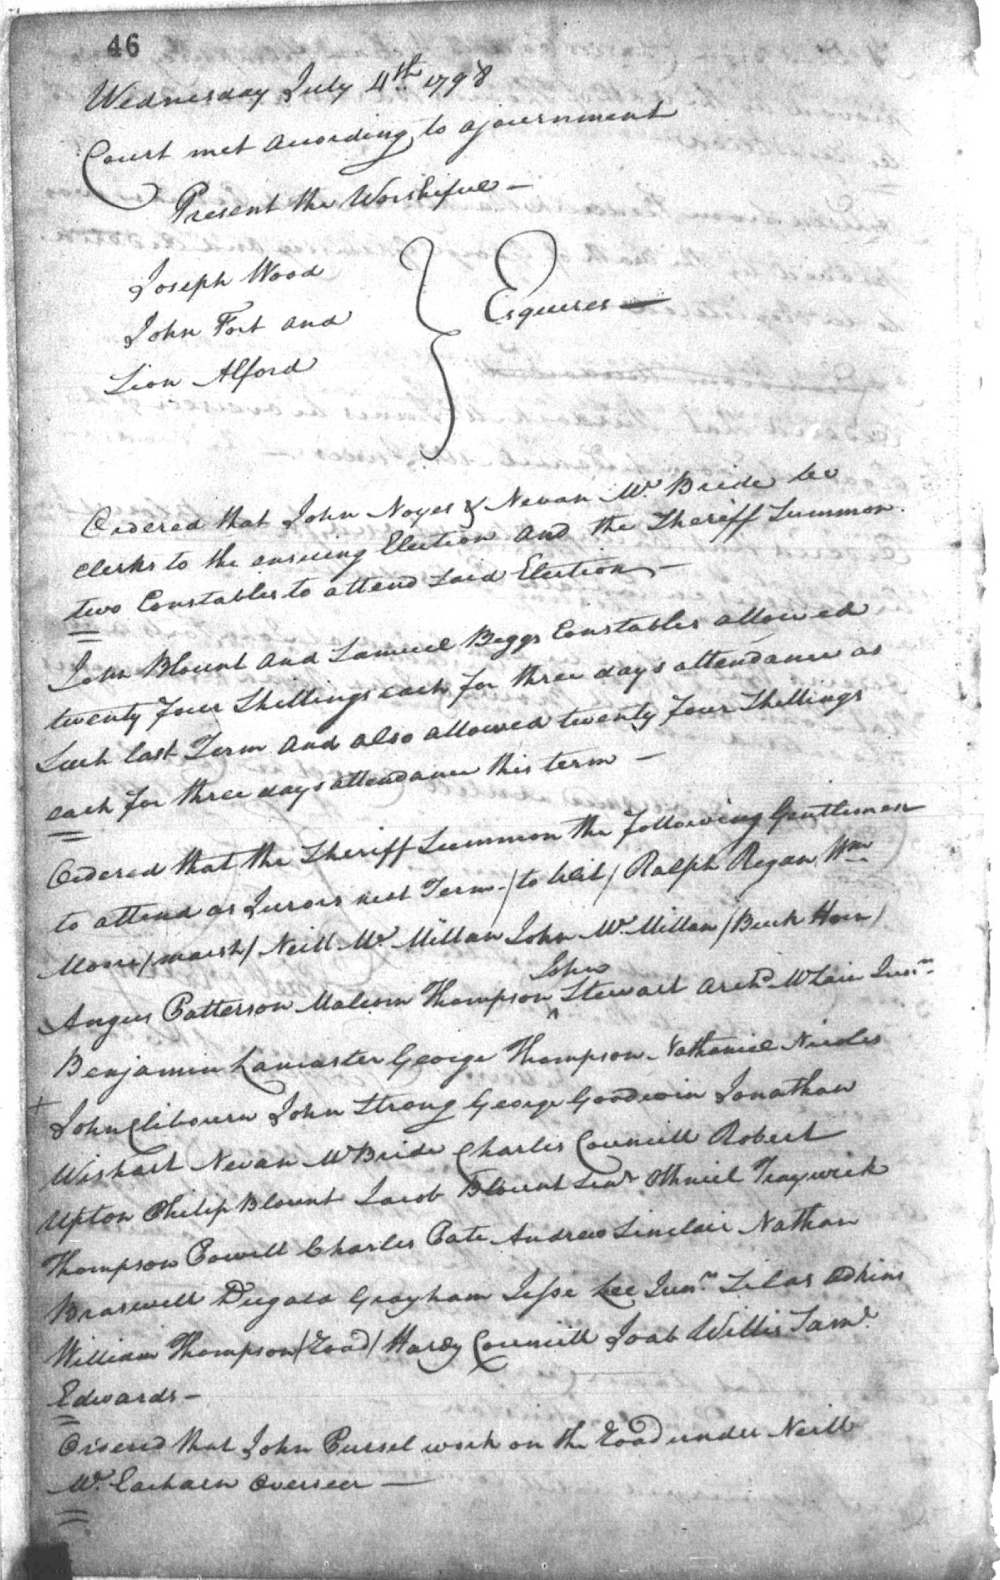 46
Wednesday July 4th 1798
Court met according to ajournment
Present the Worshipful —
Joseph Wood
John Fort and
Lion Alford
Esquires —
Ordered that John Noyes & Nevan Mc Bride be
clerks to the ensuing Election and the Sheriff Summon
two Constables to attend said Election —
John Blount and Samuel Biggs Constables allowed
twenty four Shillings each for three days attendance as
Such last Term and also allowed twenty four Shillings
each for three days attendance this term —
Ordered that the Sheriff Summon the following Gentlemen
to attend as Jurors next Term /to wit/ Ralph Regan Wm
Moore /marsh/ Neill Mc Millan John Mc Millan /Buck Horn/
Angus Patterson Malcom Thompson John Stewart Archd McLain Junr
Benjamin Lancaster George Thompson Nathaniel Nicoles
+ John Clibourn John Strong George Goodwin Jonathan
Wishart Nevan McBride Charles Councill Robert
Upton Philip Blount Jacob Blount Senr Othniel Traywick
Thompson Powell Charles Pate Andrew Sinclair Nathan
Braswell Dugald Grayham Jesse Lee Junr Silas Adkins
William Thompson /Toad/ Hardy Councill Joab Willis Saml
Edwards —
Ordered that John Pursel work on the Road under Neill
Mc Eachern Overseer —